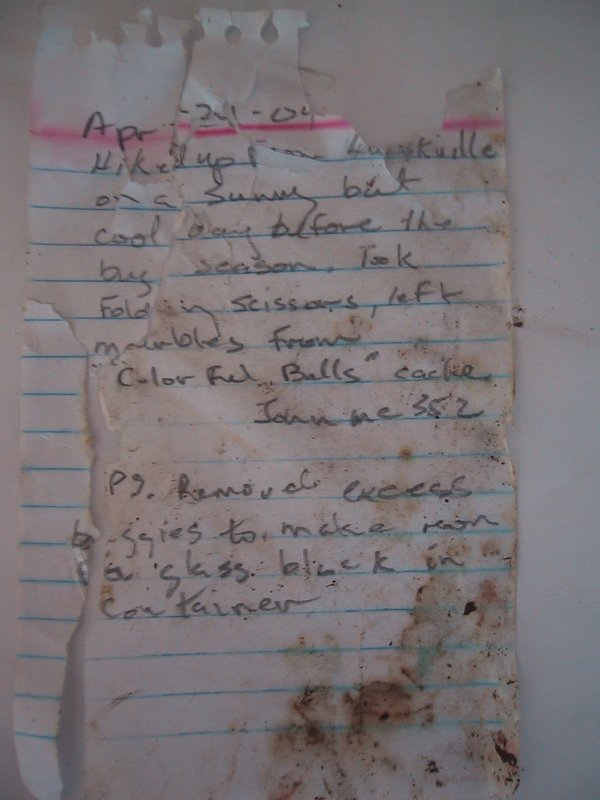 Apr -24-04
Hiked up from
on a sunny but
cool day before the
bug season. Took
Folding scissors, left
marbles from
"Colorful Balls" cache.
352
PS. Removed excess
baggies to make room
a glass block in
container